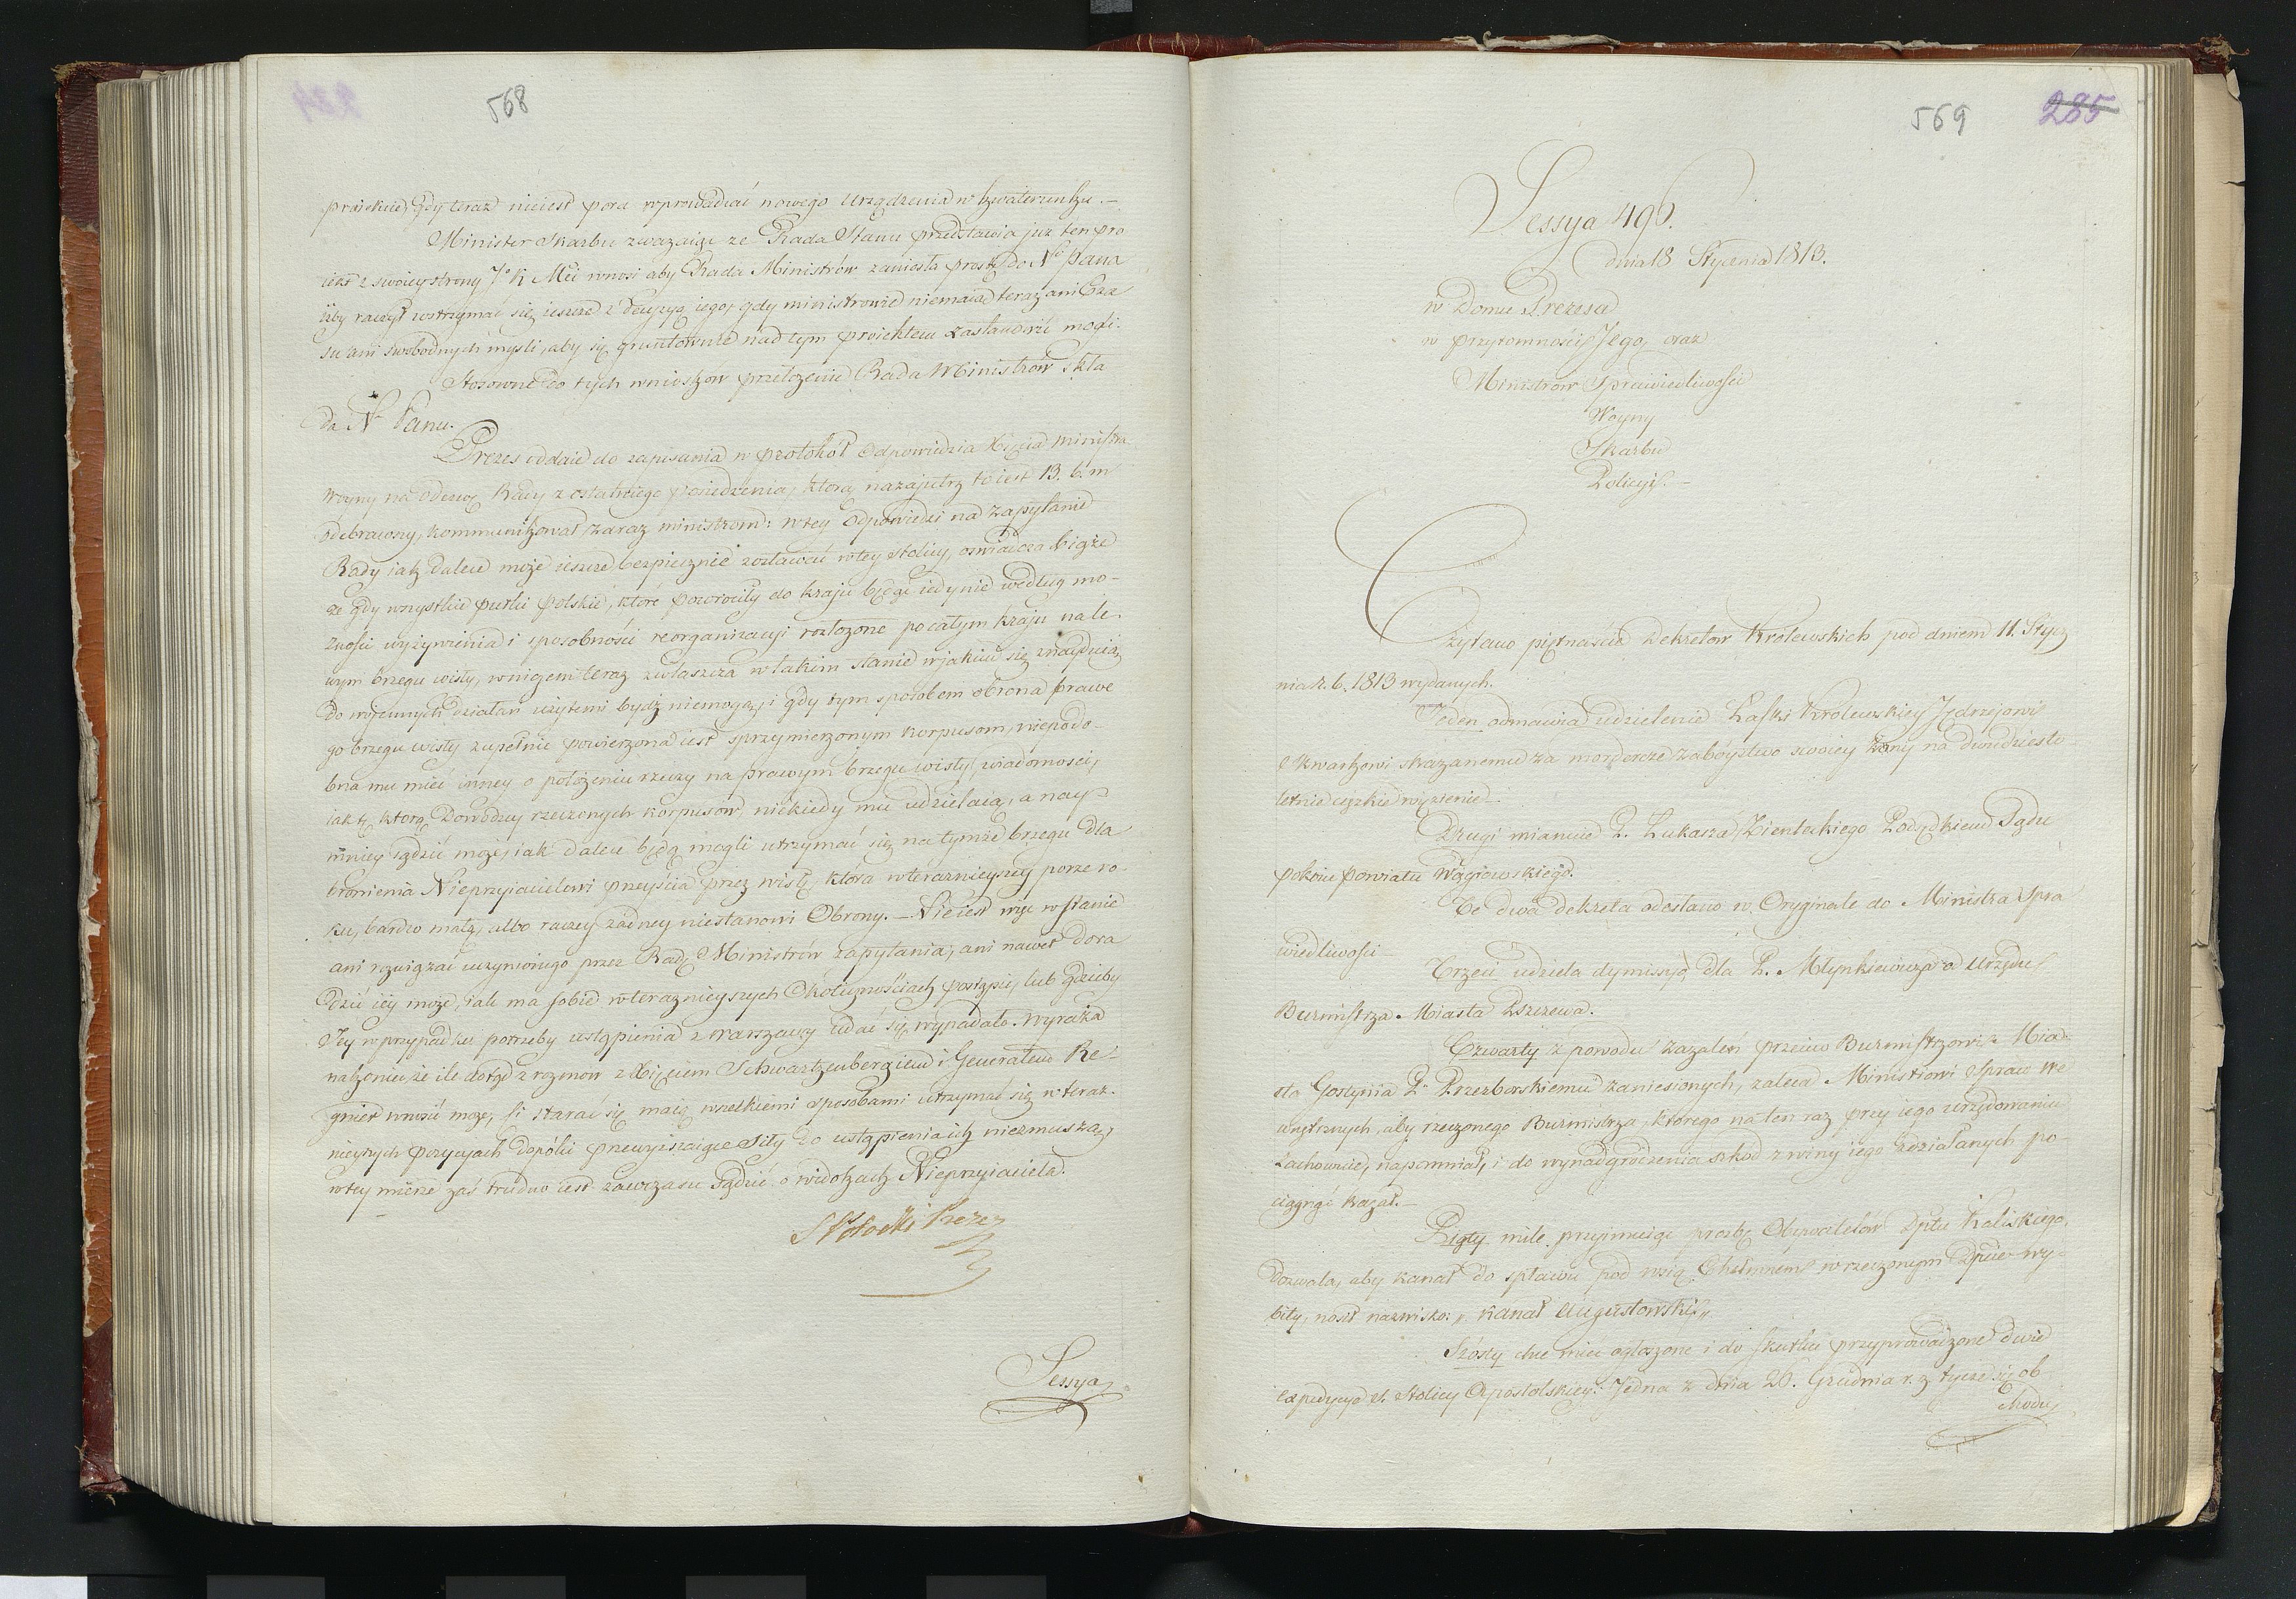 568
proiekcie, gdy teraz nieiest pora wprowadzać nowego urządzenia w kwaterunku. —
Minister Skarbu zważaiąc że Rada Stanu przedstawia już ten pro
iekt z swoiey strony J° K Mci wnosi aby Rada Ministrów zaniosła prośbę do N° Pana
iżby raczył wstrzymać się ieszcze z decyzyą iego, gdy ministrowie niemaią teraz ani Cza
su ani swobodnych myśli, aby się gruntownie nad tym proiektem zastanowić mogli.
Stosownie do tych wniosków przełożenie Rada Ministrów skła
da N° Panu.
Prezes oddaie do zapisania w protokół Odpowiedzia Xięcia Ministra
Woyny na odezwę Rady z ostatniego posiedzenia, którą nazajutrz to iest 13. b. m
odebrawszy, kommunikował zaraz ministrom: w tey Odpowiedzi na zapytanie
Rady iak dalece może ieszcze bezpiecznie zostawać w tey stolicy, oświadcza Xiąże
że gdy wszystkie pułki Polskie, które powróciły do kraju będąc iedynie według mo-
żności wyżywienia i sposobności reorganizacyi rozłożone po całym kraju na le-
wym brzegu wisły, w niczem teraz zwłaszcza w takim stanie w jakim się znayduią
do woiennych działań użytemi bydź niemogą, i gdy tym sposobem obrona prawe
go brzegu wisły zupełnie powierzona iest sprzymierzonym korpusom, niepodo-
bna mu mieć inney o położeniu rzeczy na prawym brzegu wisły wiadomości,
iak tę, którą Dowódzcy rzeczonych korpusów niekiedy mu udzielaią, a nay-
mniey sądzić może, iak dalece będą mogli utrzymać się na tymże brzegu dla
bronienia Nieprzyiacielowi przeyścia przez wisłę, która w teraźnieyszey porze ro-
ku, bardzo małą, albo raczey żadney niestanowi Obrony. — Nieiest więc w stanie
ani rozwiązać uczynionego przez Radę Ministrów zapytania, ani nawet dora
dzić iey może, iak ma sobie w teraznieyszych Okolicznościach postąpić, lub gdzieby
Jey w przypadku potrzeby ustąpienia z Warszawy udać się wypadało. Wyraża
nakoniec, że ile dotąd z rozmów z Xięciem Schwartzenbergiem i Generałem Re-
gnier wnosić może, ci starać się maią wszelkiemi sposobami utrzymać się w teraz-
nieyszych pozycyach dopóki przewyższaiące siły do ustąpienia ich niezmuszą,
w tey mierze zaś trudno iest zawczasu sądzić o widokach Nieprzyiaciela.
S Potocki Prezes
Sessya
569 285
Sessya 496.
dnia 18 Stycznia 1813.
w Domu Prezesa
w przytomności Jego, oraz
Ministrów Sprawiedliwości
Woyny
Skarbu
Policyi. —
Czytano piętnaście Dekretów Królewskich pod dniem 11. Stycz
nia r. b. 1813 wydanych.
Jeden odmawia udzielenie Łaski Królewskiey Jędrzejowi
Skwarkowi skazanemu za mordercze zaboystwo swoiey żony na dwudziesto
letnie ciężkie więzienie —
Drugi mianuie P. Łukasza Zienteckiego Podsędkiem Sądu
pokoiu powiatu Wągrowskiego.
Te dwa dekreta odesłano w Oryginale do Ministra Spra
wiedliwości —
Trzeci udziela dymissyą dla P. Młynkiewicza o Urzędu
Burmistrza Miasta Pszczewa.
Czwarty z powodu zażaleń przeciw Burmistrzowi Mia-
sta Gostynia P. Przezborskiemu zaniesionych, zaleca Ministrowi Spraw We
wnętrznych, aby rzeczonego Burmistrza, którego na ten raz przy iego urzędowaniu
zachowuie, napomniał, i do wynadgrodzenia szkod z winy iego zdziałanych po-
ciągnąć kazał. —
Piąty mile przyimuiąc prozbę Obywatelów Dptu Kaliskiego,
dozwala, aby kanał do spławu pod wsią Chełmnem w rzeczonym Dpcie wy-
bity, nosił nazwisko: „ Kanał Augustowski „
Szósty chce mieć ogłoszone i do skutku przyprowadzone dwie
expedycye S. Stolicy Apostolskiey. Jedna z dnia 26. Grudnia r. z tycze się ob
chodu